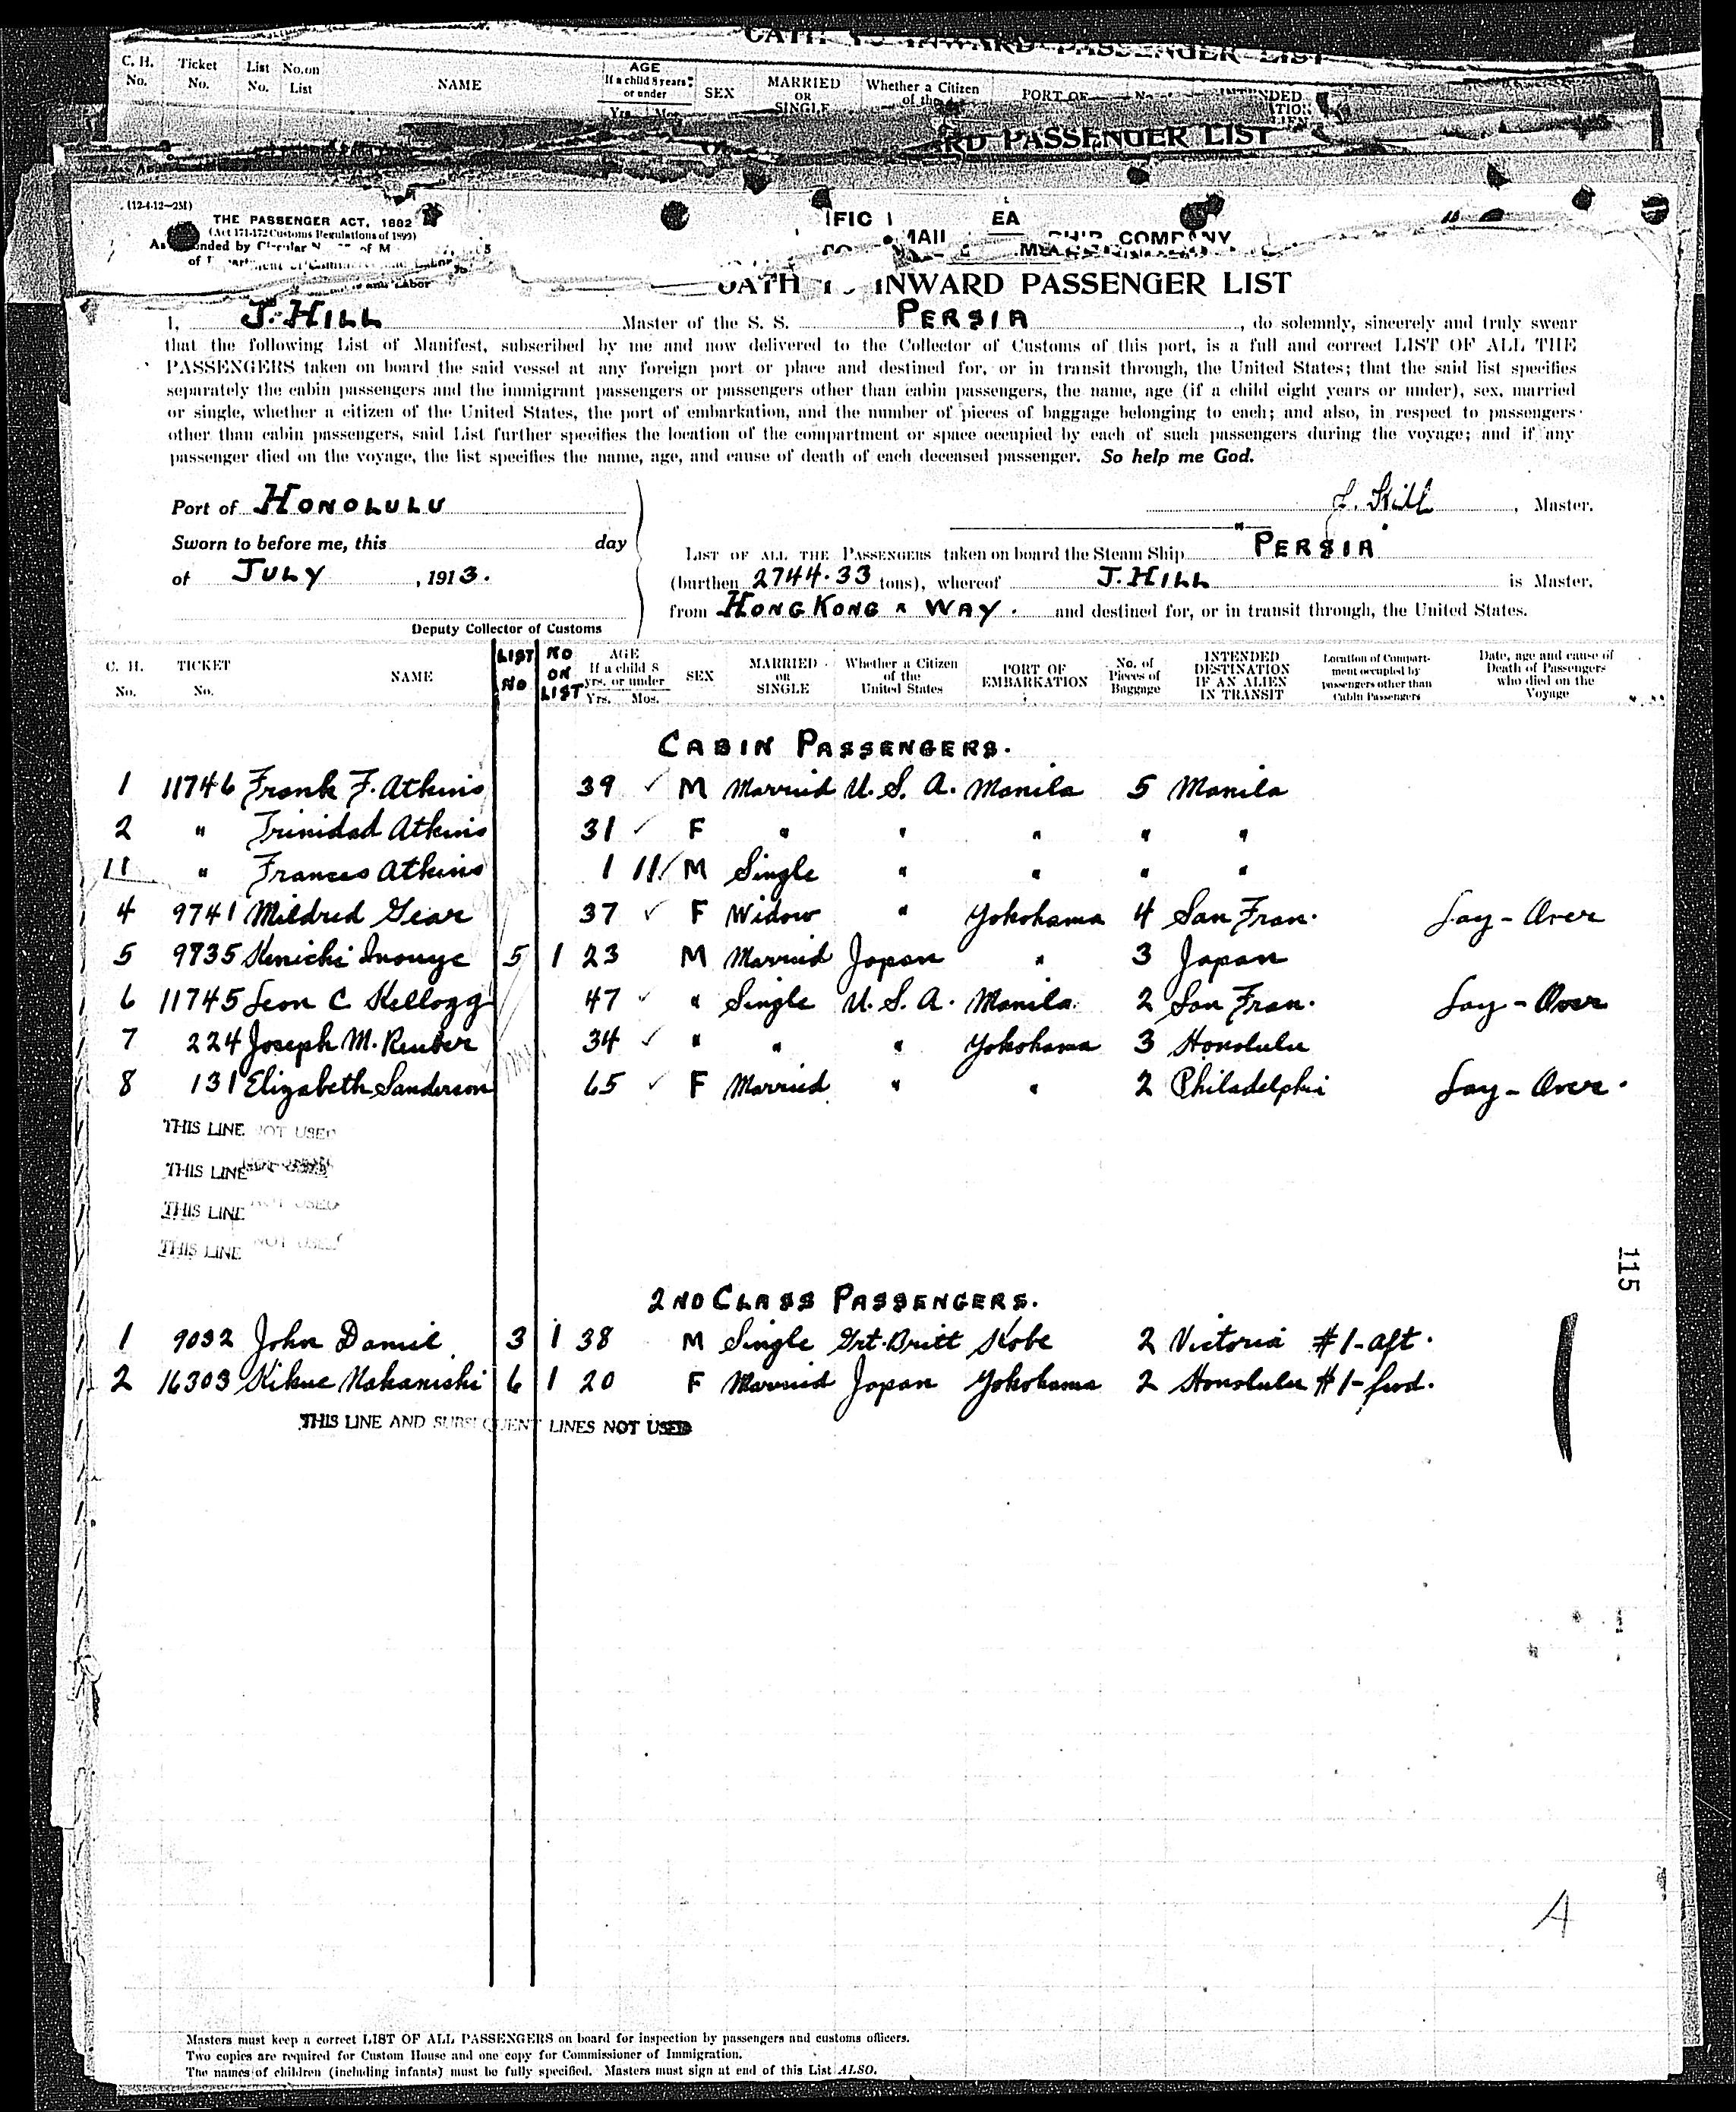 C. H. No. Ticket No. List No. No. on List NAME AGE If a child 8 years or under Yrs. Mos. SEX MARRIED OR SINGLE Whether a Citizen of the PORT OF
RD PASSENGER LIST
(12-4-12—2M)
THE PASSENGER ACT, 1882
(Act 171-172 Customs Regulations of 1899)
SHIP COMPANY
OATH INWARD PASSENGER LIST
I, J. HILL Master of the S. S. PERSIA, do solemnly, sincerely and truly swear
that the following List of Manifest, subscribed by me and now delivered to the Collector of Customs of this port, is a full and correct LIST OF ALL THE
PASSENGERS taken on board the said vessel at any foreign port or place and destined for, or in transit through, the United States; that the said list specifies
separately the cabin passengers and the immigrant passengers or passengers other than cabin passengers, the name, age (if a child eight years or under), sex, married
or single, whether a citizen of the United States, the port of embarkation, and the number of pieces of baggage belonging to each; and also, in respect to passengers
other than cabin passengers, said List further specifies the location of the compartment or space occupied by each of such passengers during the voyage; and if any
passenger died on the voyage, the list specifies the name, age, and cause of death of each deceased passenger. So help me God.
Port of HONOLULU
J. Hill, Master.
Sworn to before me, this day
of JULY, 1913.
LIST OF ALL THE PASSENGERS taken on board the Steam Ship "PERSIA"
(burthen 2744.33 tons), whereof J. HILL is Master,
from HONG KONG & WAY. and destined for, or in transit through, the United States.
Deputy Collector of Customs
C. H. No. TICKET No. NAME LIST NO NO ON LIST AGE If a child 8 yrs. or under Yrs. Mos. SEX MARRIED or SINGLE Whether a Citizen of the United States PORT OF EMBARKATION No. of Pieces of Baggage INTENDED DESTINATION IF AN ALIEN IN TRANSIT Location of Compartment occupied by passengers other than Cabin Passengers Date, age and cause of Death of Passengers who died on the Voyage
CABIN PASSENGERS.
1 11746 Frank F. Atkins 39 ✓ M Married U.S.A. Manila 5 Manila
2 " Trinidad Atkins 31 ✓ F " " " " "
11 " Frances Atkins 1 11/ M Single " " " "
4 9741 Mildred Gear 37 ✓ F Widow " Yokohama 4 San Fran. Lay-Over
5 9735 Kenichi Inouye 5 1 23 M Married Japan " 3 Japan
6 11745 Leon C Kellogg 47 ✓ " Single U.S.A. Manila 2 San Fran. Lay-Over
7 224 Joseph M. Reuter 34 ✓ " " " Yokohama 3 Honolulu
8 131 Elizabeth Sanderson 65 ✓ F Married " " 2 Philadelphia Lay-Over.
THIS LINE NOT USED
THIS LINE
THIS LINE NOT USED
THIS LINE NOT USED
115
2ND CLASS PASSENGERS.
1 9032 John Daniel 3 1 38 M Single Grt. Britt Kobe 2 Victoria #1-aft.
2 16303 Kikue Nakanishi 6 1 20 F Married Japan Yokohama 2 Honolulu #1-fwd.
THIS LINE AND SUBSEQUENT LINES NOT USED
A
Masters must keep a correct LIST OF ALL PASSENGERS on board for inspection by passengers and customs officers.
Two copies are required for Custom House and one copy for Commissioner of Immigration.
The names of children (including infants) must be fully specified. Masters must sign at end of this List ALSO.